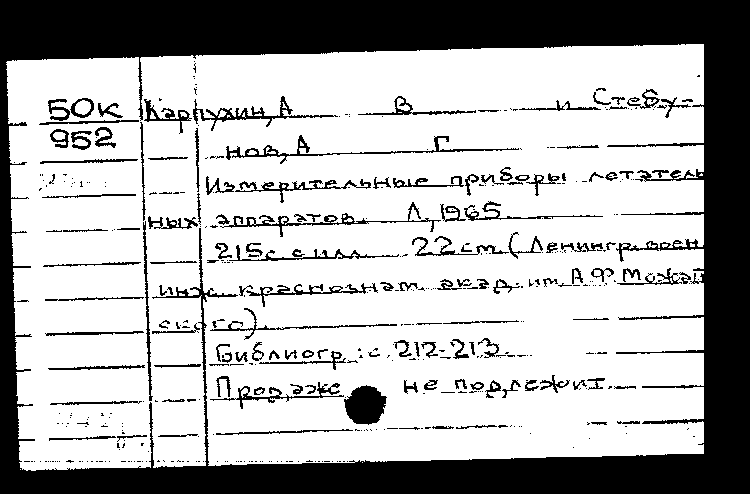 50к Карпухин, А В и Стебу-
952 нов, А Г
Измерительные приборы летатель
ных аппаратов. Л., 1965
215с с илл 22 cm (Ленингр. воен
инж. краснознам. акад. им. А Ф Можай
ского).
Библиогр : с. 212-213.
Продаже не подлежит.